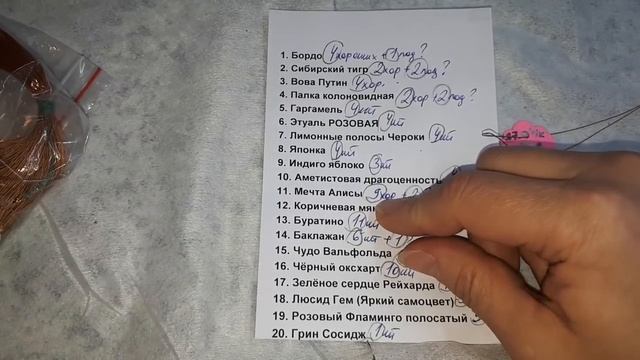 1. Бордо 4 хороших + 1 под?
2. Сибирский тигр 2 хор + 2 под?
3. Вова Путин 4 хор.
4. Палка колоновидная 2 хор + 2 под?
5. Гаргамель 4 шт
6. Этуаль РОЗОВАЯ 4 шт
7. Лимонные полосы Чероки 4 шт
8. Японка 4 шт
9. Индиго яблоко 3 шт
10. Аметистовая драгоценность
11. Мечта Алисы 9 хор +
12. Коричневая
13. Буратино 11 шт
14. Баклажан 6 шт + 1
15. Чудо Вальфольда
16. Чёрный оксхарт 10 шт
17. Зелёное сердце Рейхарда
18. Люсид Гем (Яркий самоцвет)
19. Розовый Фламинго полосатый
20. Грин Сосидж 1 шт